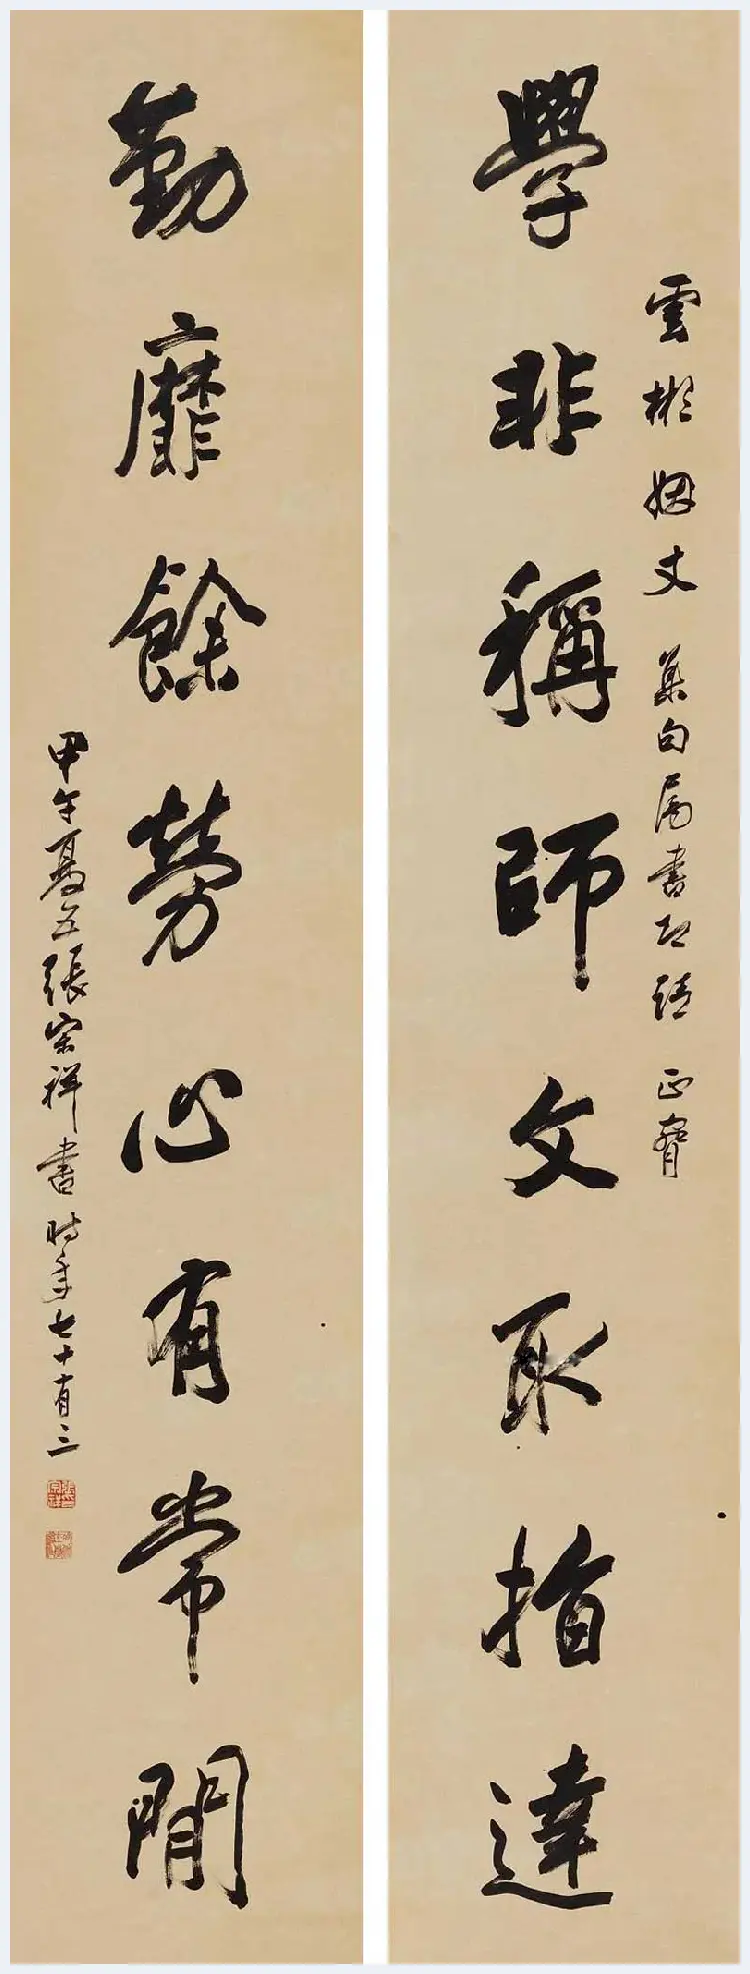 雲彬姻丈 集句屬書即請 正腕
學非稱師文取指達
勤靡餘勞心有常閒
甲午夏五張宗祥書時年七十有三